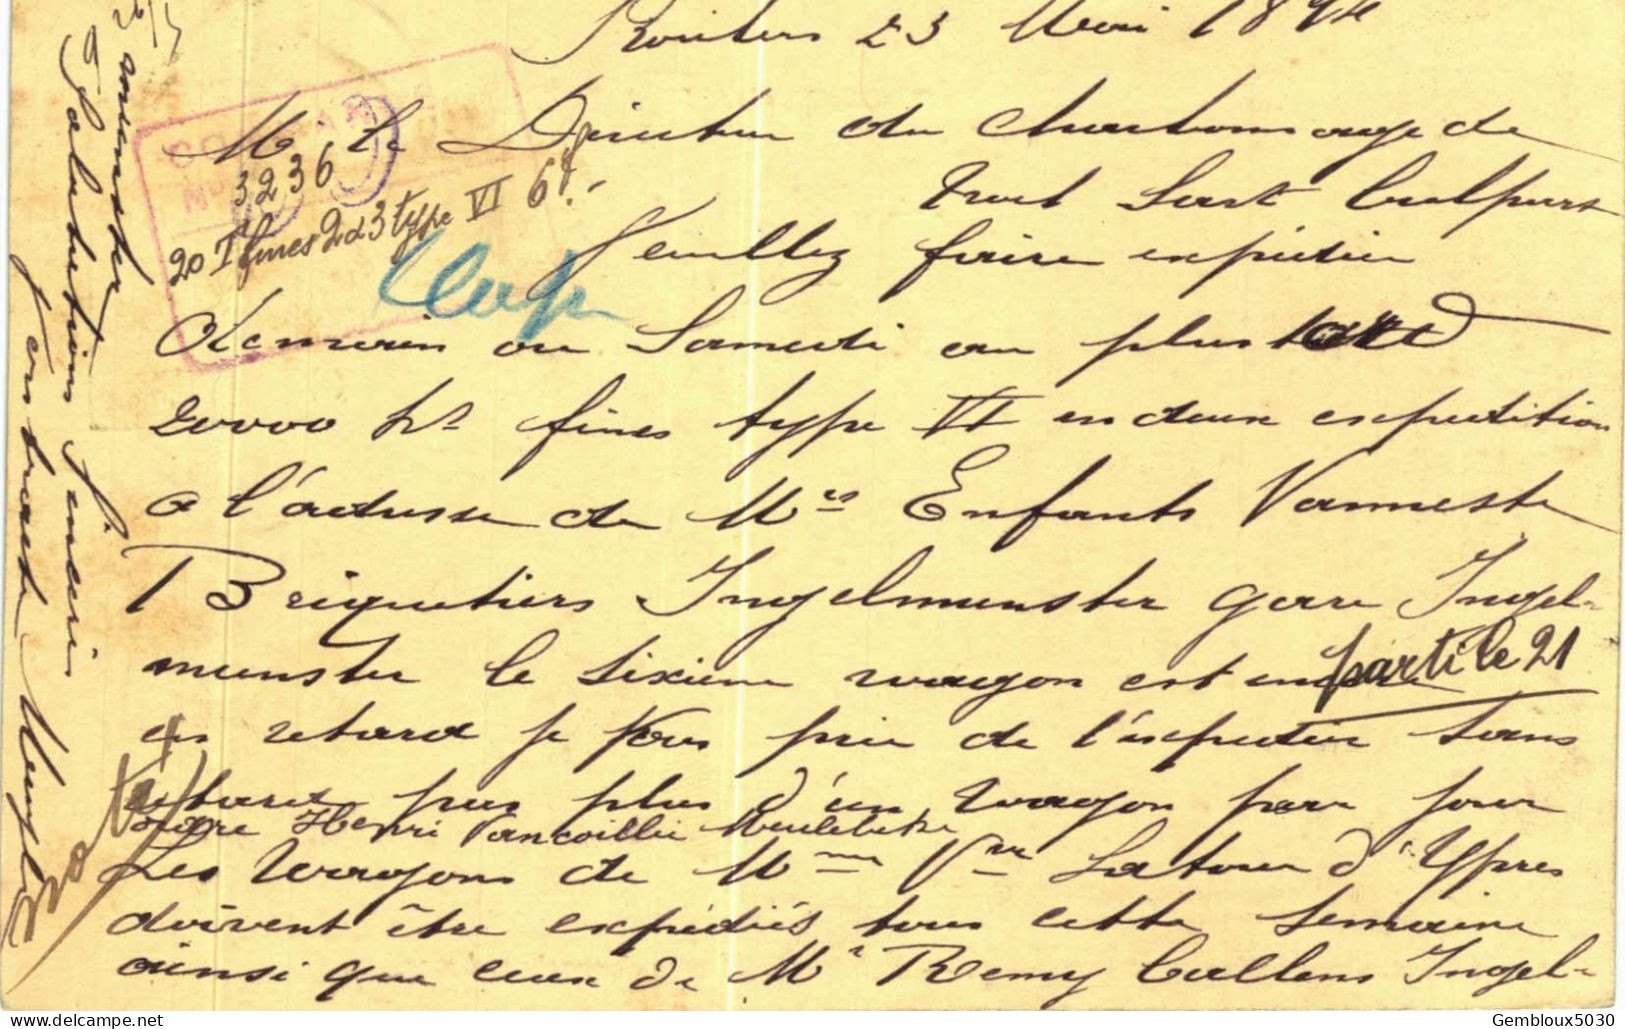 Roulers 23 Mai 1894
Mr le Directeur du Charbonnage de
Veuillez faire expédier
demain ou Samedi au plus tard
20000 ks fines type VI en deux expedition
a l'adresse de Mrs Enfants Vanneste
Briquetiers Ingelmunster gare Ingel-
munster le sixieme wagon est encore
en retard je vous prie de l'expedier sans
retard pas plus d'un wagon par jour
gare Henri Vancoillie Meulebeke
Les wagons de Mme Vve Latour d'Ypres
doivent être expédiés tous cette semaine
ainsi que ceux de Mr Remy Callens Ingel-
munster
Salutations sincères
3236
20 T fines 2 d 3 type VI 6
parti le 21
Gembloux5030